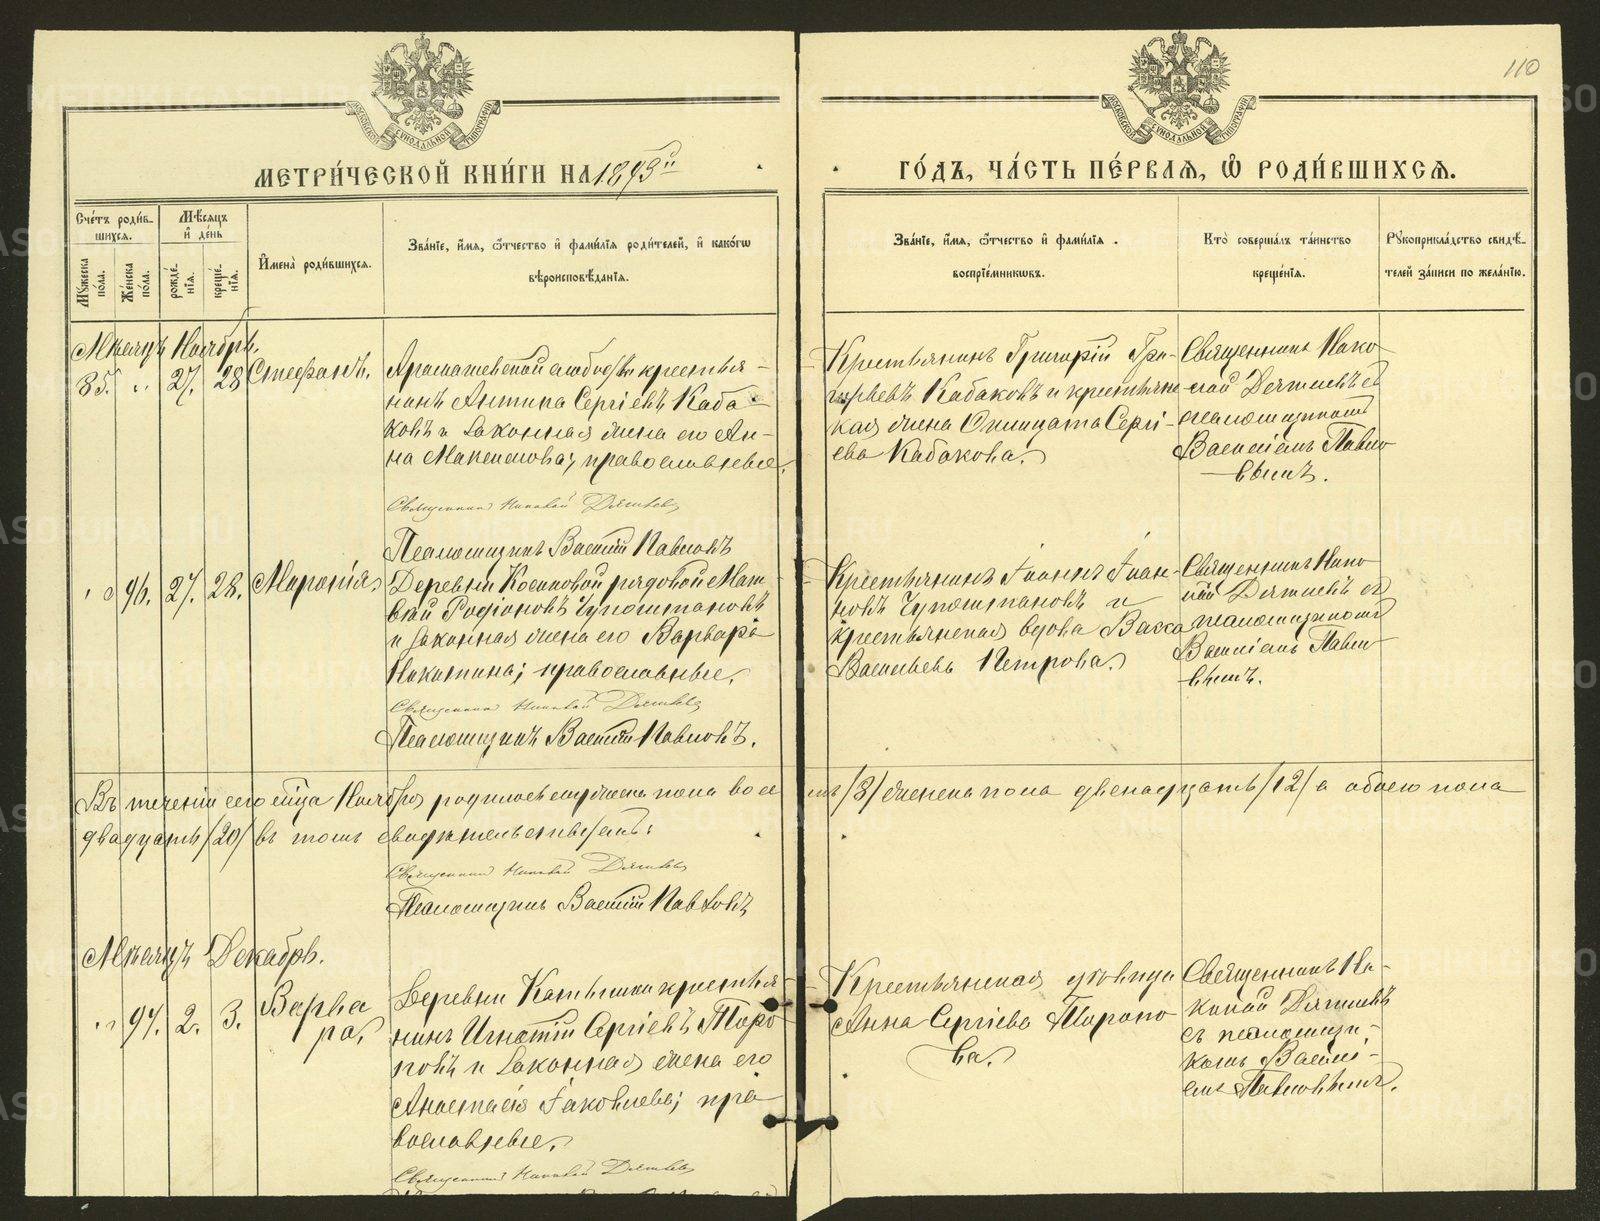 110
МЕТРИ́ЧЕСКОЙ КНИ́ГИ НА 1893й
ГО́ДЪ, ЧА́СТЬ ПЕ́РВАЯ, Ѡ РОДИ́ВШИХСЯ.
Сче́тъ роди́в-
шихся.
Мѣ́сяцъ
и де́нь
Мꙋ́жеска по́ла.
Же́нска по́ла.
рожде́нїя.
креще́нїя.
И҆мена̀ роди́вшихся.
Зва́нїе, и҆́мя, ѻ҆́тчество и҆ фами́лїя роди́телей, и҆ како́гѡ
вѣроисповѣ́данїя.
Зва́нїе, и҆́мя, ѻ҆́тчество и҆ фами́лїя
воспрїе́мникѡвъ.
Кто̀ соверша́лъ та́инство
креще́нїя.
Рꙋкоприкла́дство свидѣ́-
телей за́писи по жела́нїю.
Мѣсяцъ Ноябрь.
85. „ 27. 28 Стефанъ.
Арамашевской слободы крестья-
нинъ Антипа Сергіевъ Каба-
ковъ и законная жена его Ан-
на Максимова; православные.
Священникъ Николай Дягилевъ
Псаломщикъ Василій Павловъ
Крестьянинъ Григорій Гри-
горьевъ Кабаковъ и крестьянс-
кая жена Сергі-
ева Кабакова.
Священникъ Нико-
лай Дягилевъ съ
псаломщикомъ
Василіемъ Павло-
вымъ.
„ 96. 27. 28. Маронія.
Деревни Косиковой рядовой Мат-
вѣй Родіоновъ Чупоштановъ
и законная жена его Варвара
Никитина; православные.
Священникъ Николай Дягилевъ
Псаломщикъ Василій Павловъ.
Крестьянинъ Іоаннъ Іоан-
новъ Чупоштановъ и
крестьянская вдова Васса
Васильева Петрова.
Священникъ Нико-
лай Дягилевъ съ
псаломщикомъ
Василіемъ Павло-
вымъ.
Въ теченіи сего мѣсяца Ноября родилось мужеска пола восемь /8/ женска пола двенадцать /12/ а обоего пола
двадцать /20/ въ томъ свидѣтельствуемъ:
Священникъ Николай Дягилевъ
Псаломщикъ Василій Павловъ
Мѣсяцъ Декабрь.
„ 97. 2. 3. Варва
ра.
Деревни крестья-
нинъ Игнатій Сергіевъ Торо-
повъ и законная жена его
Анастасія Іаковлева; пра-
вославные.
Священникъ Николай Дягилевъ
Крестьянская дѣвица
Анна Сергіева Торопо
ва.
Священникъ Ни-
колай Дягилевъ
съ псаломщи-
комъ Василі-
емъ Павловымъ.